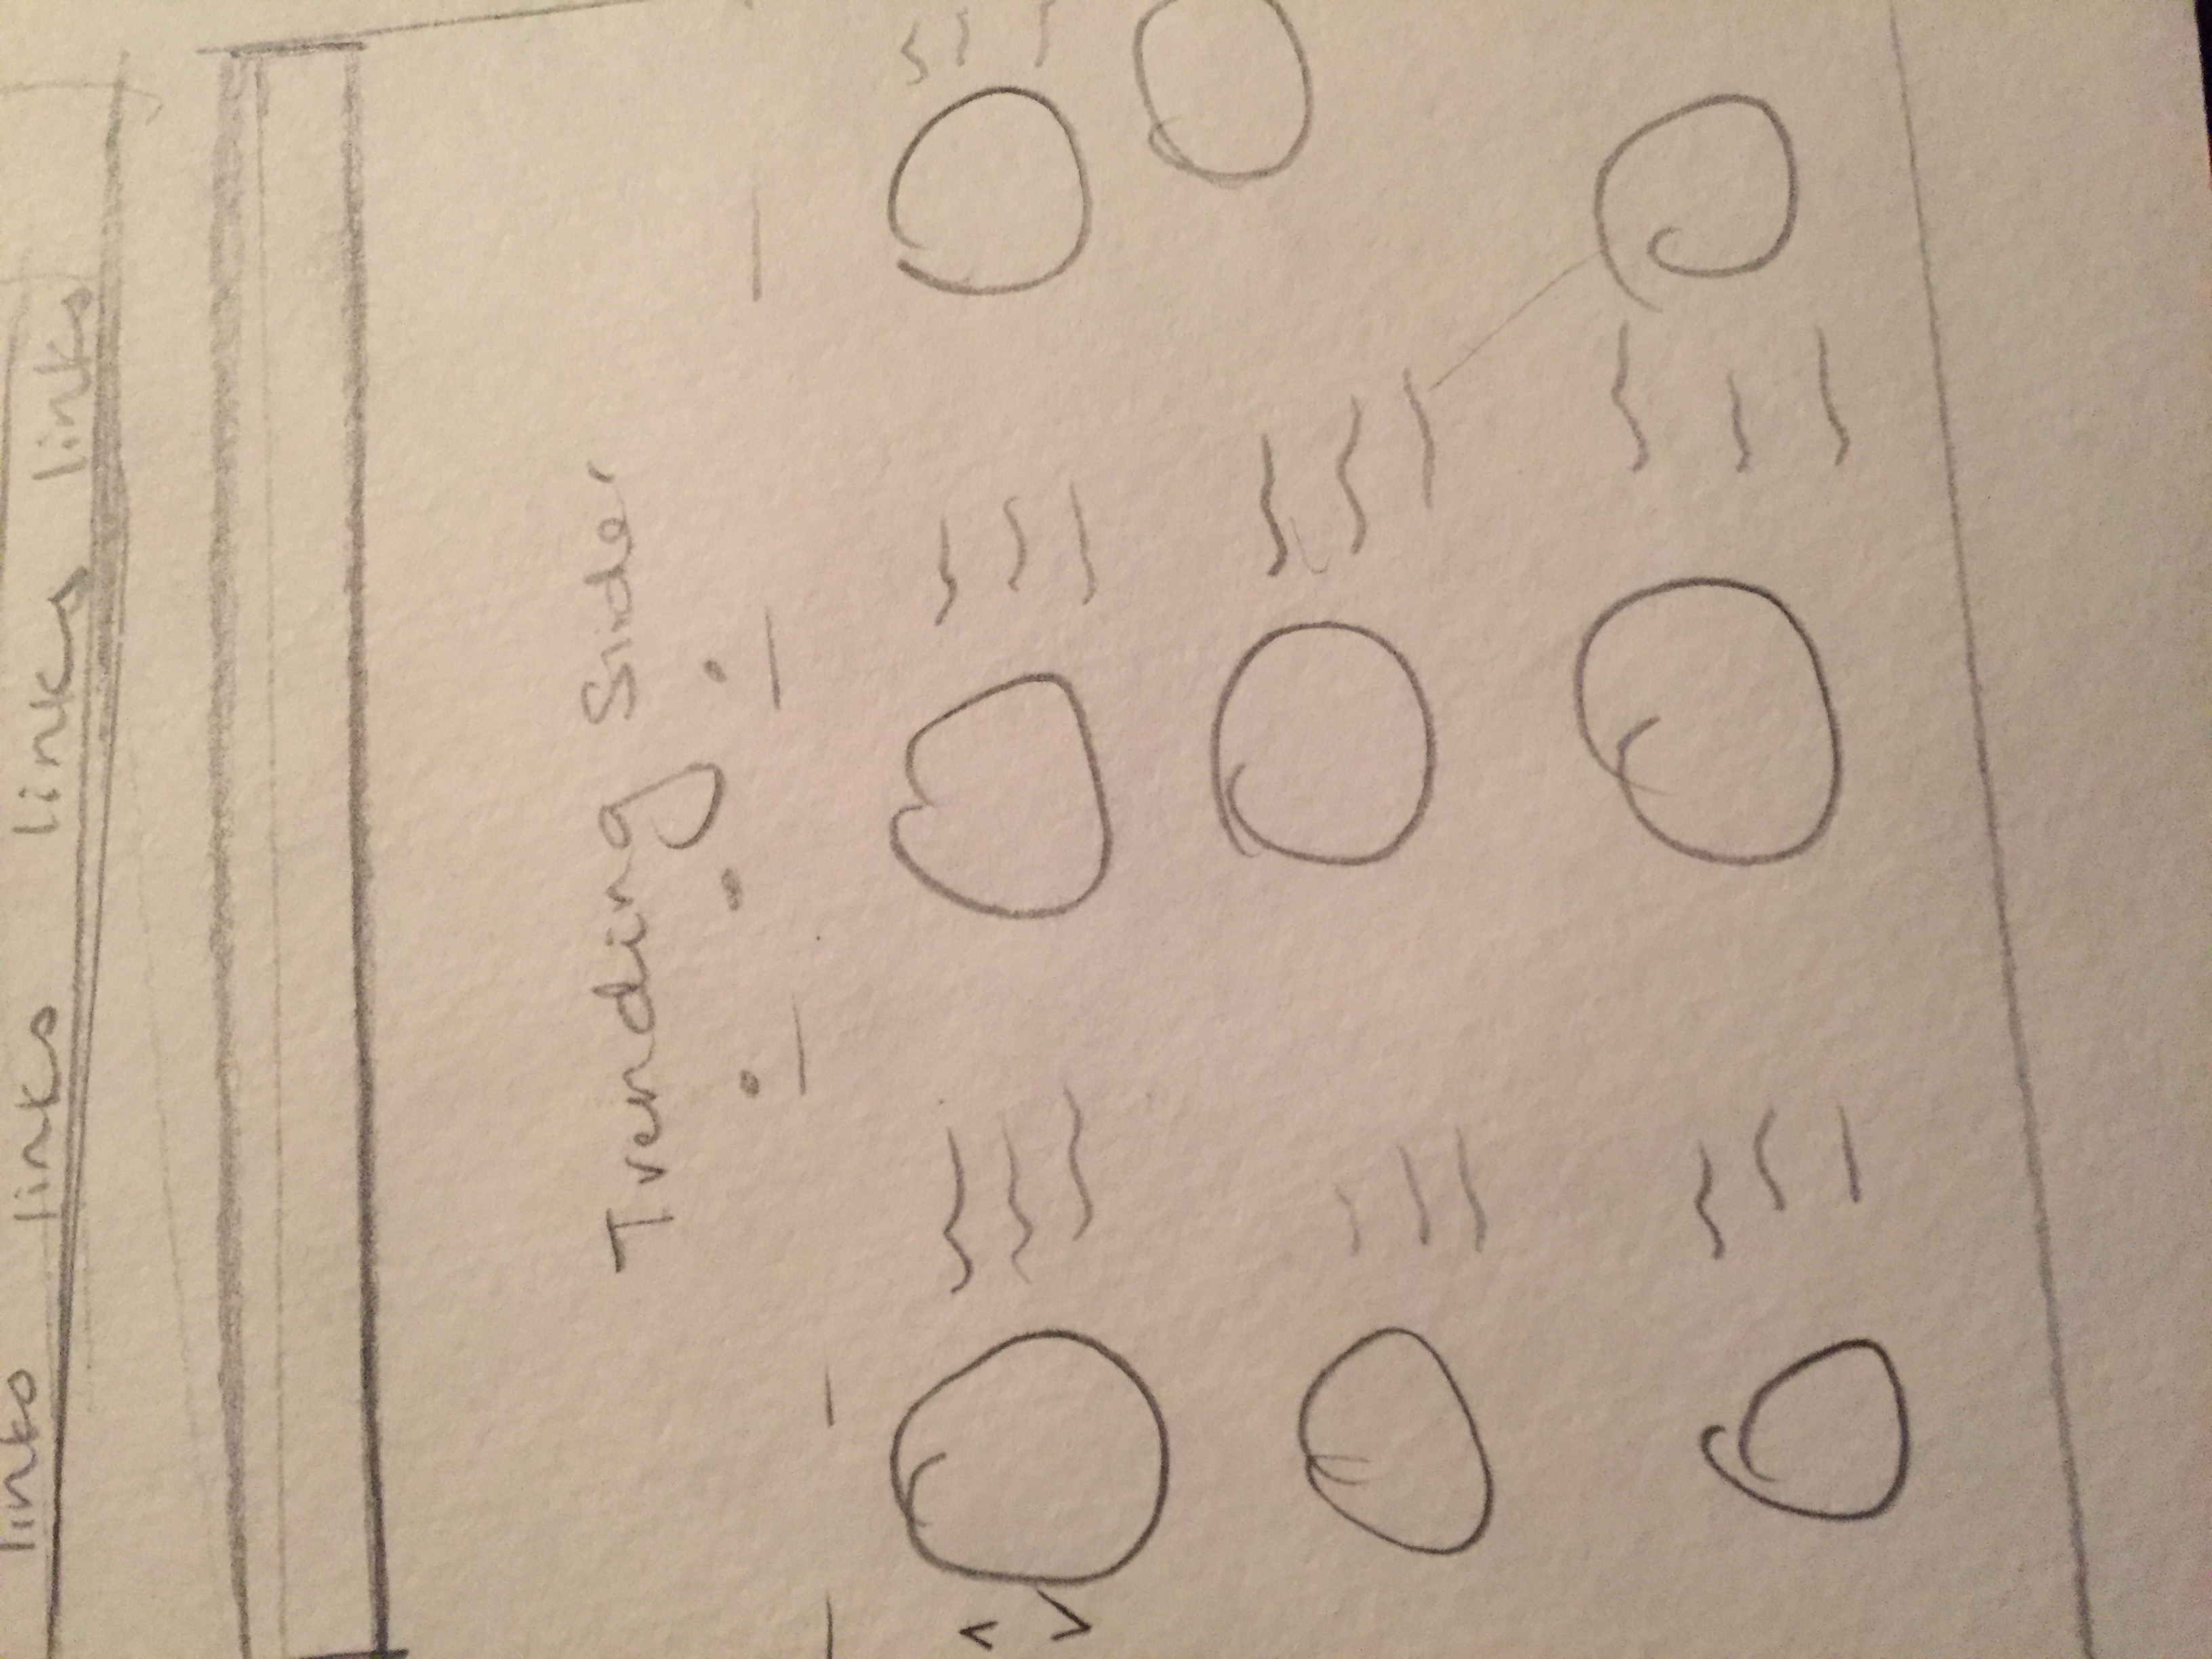 links links links links
Trending Slider